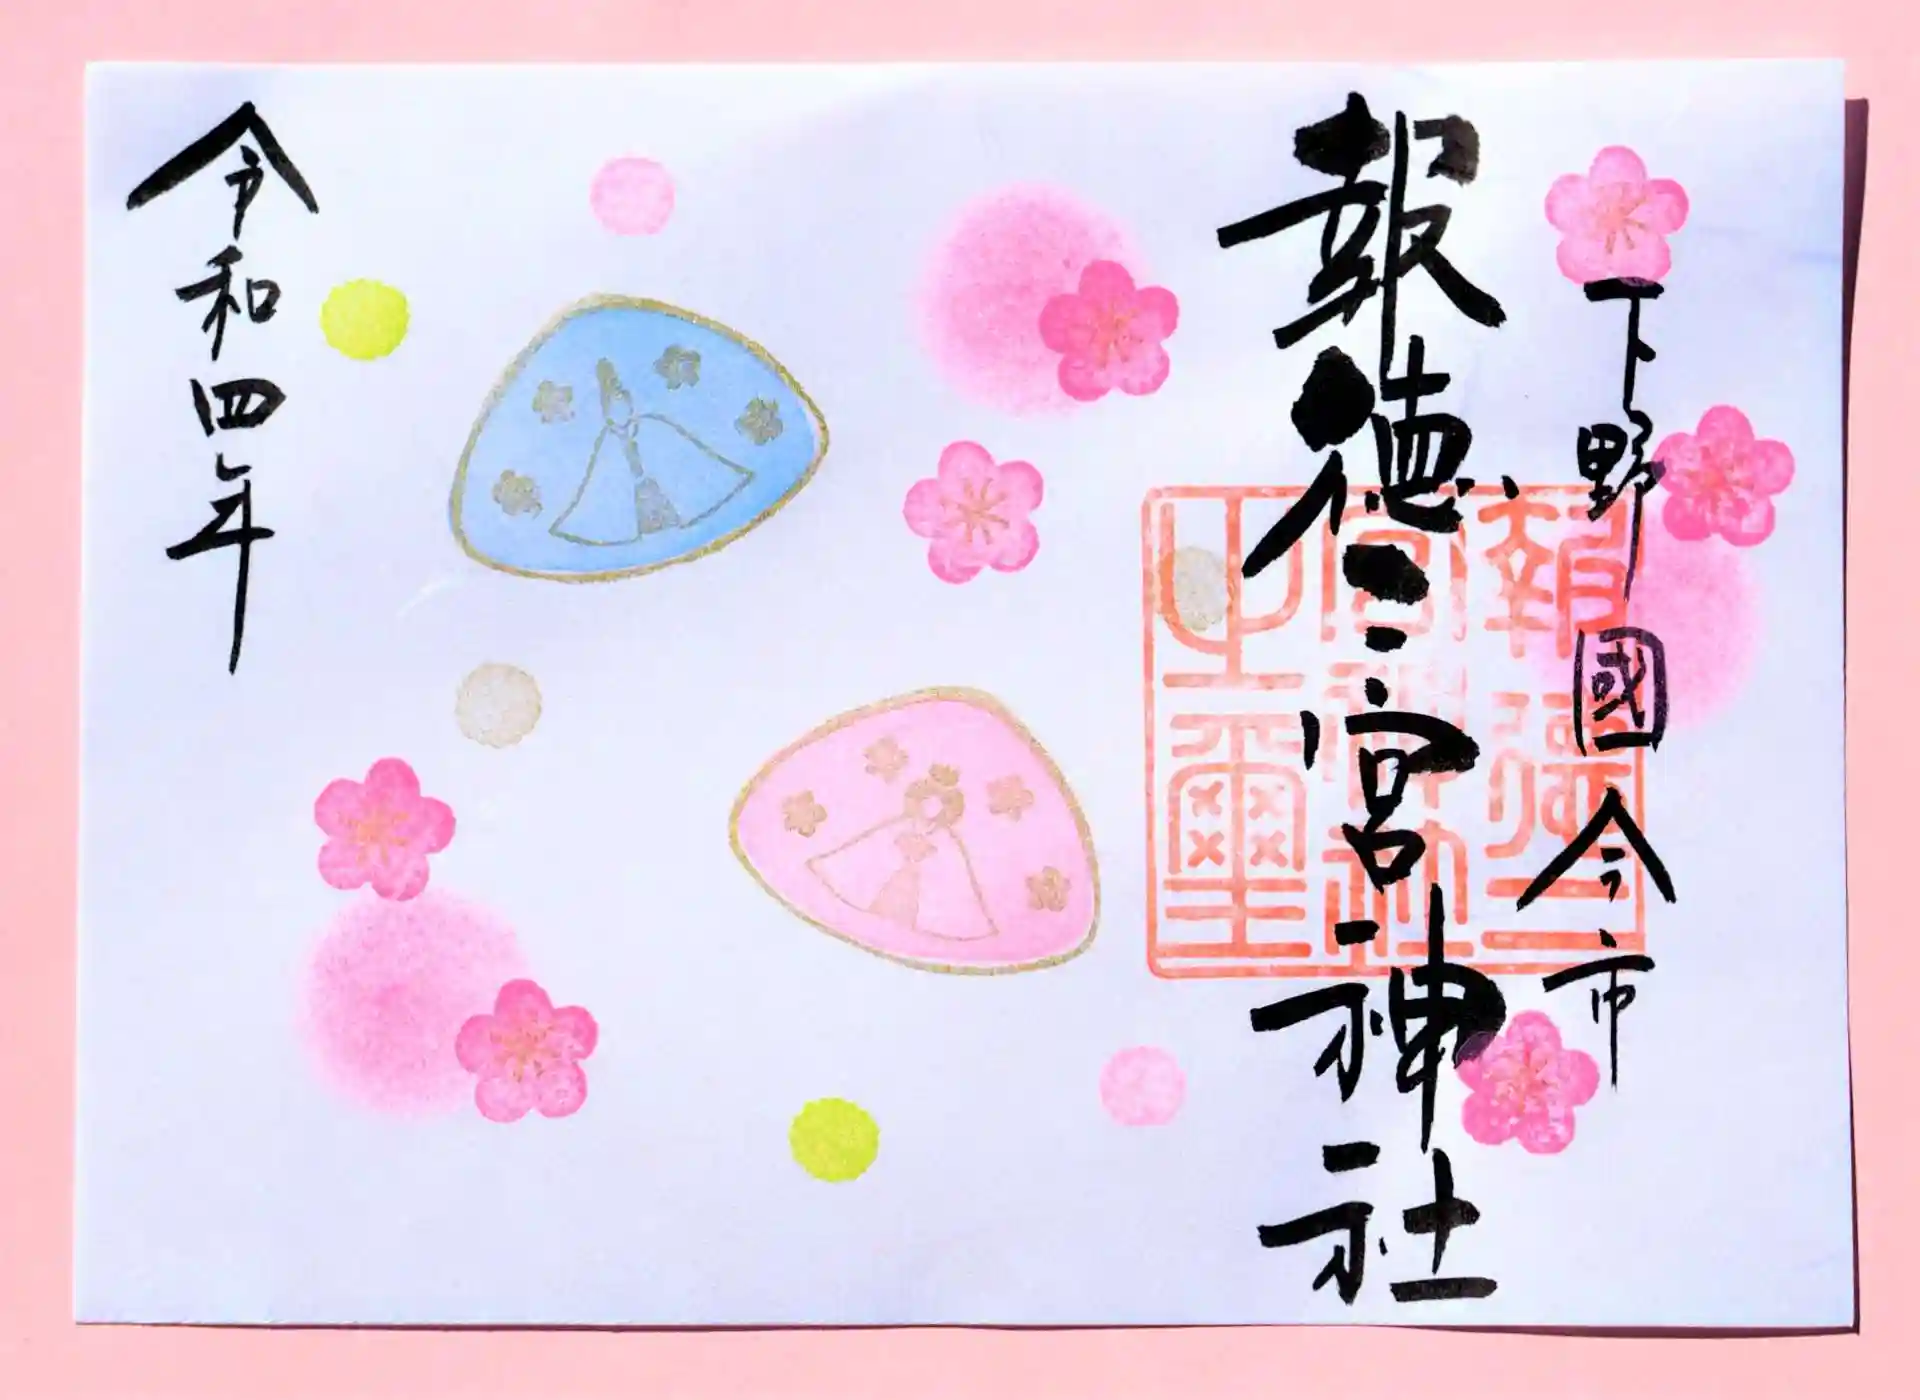 下野國今市
報徳二宮神社
報徳二宮神社之璽
令和四年